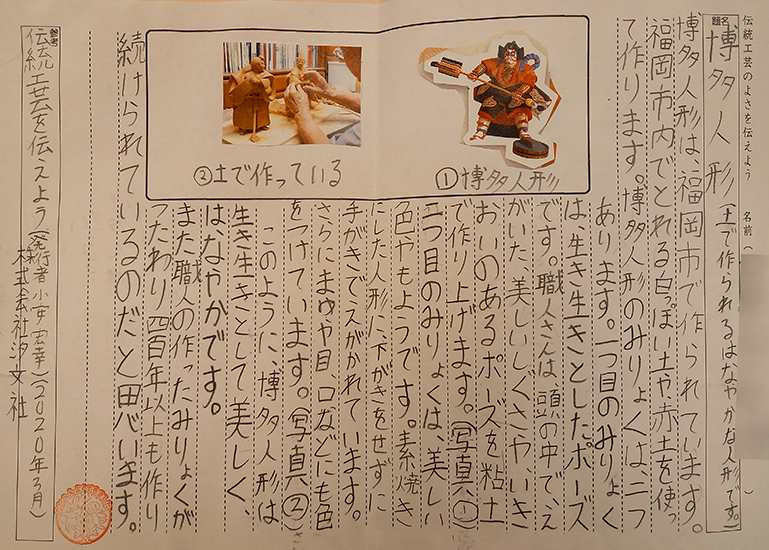 伝統工芸のよさを伝えよう　名前（　）
題名　博多人形（土で作られるはなやかな人形です。）
博多人形は、福岡市で作られています。
福岡市内でとれる白っぽい土や、赤土を使っ
て作ります。博多人形のみりょくは、二つ
あります。一つ目のみりょく
は、生き生きとしたポーズ
です。職人さんは、頭の中で、え
がいた、美しいしぐさや、いき
おいのあるポーズを粘土
で作り上げます。（写真①）
二つ目のみりょくは、美しい
色やもようです。素焼き
にした人形に、下がきをせずに
手がきでえがかれています。
さらにまゆや目、口などにも色
をつけています。（写真②）
このように、博多人形は
生き生きとして美しく、
は、なやかです。
また、職人の作ったみりょくが
つたわり四百年以上も作り
続けられているのだと思います。
①博多人形
②土で作っている
参考　伝統工芸を伝えよう（発行者小安宏幸）（2020年3月）
株式会社汐文社